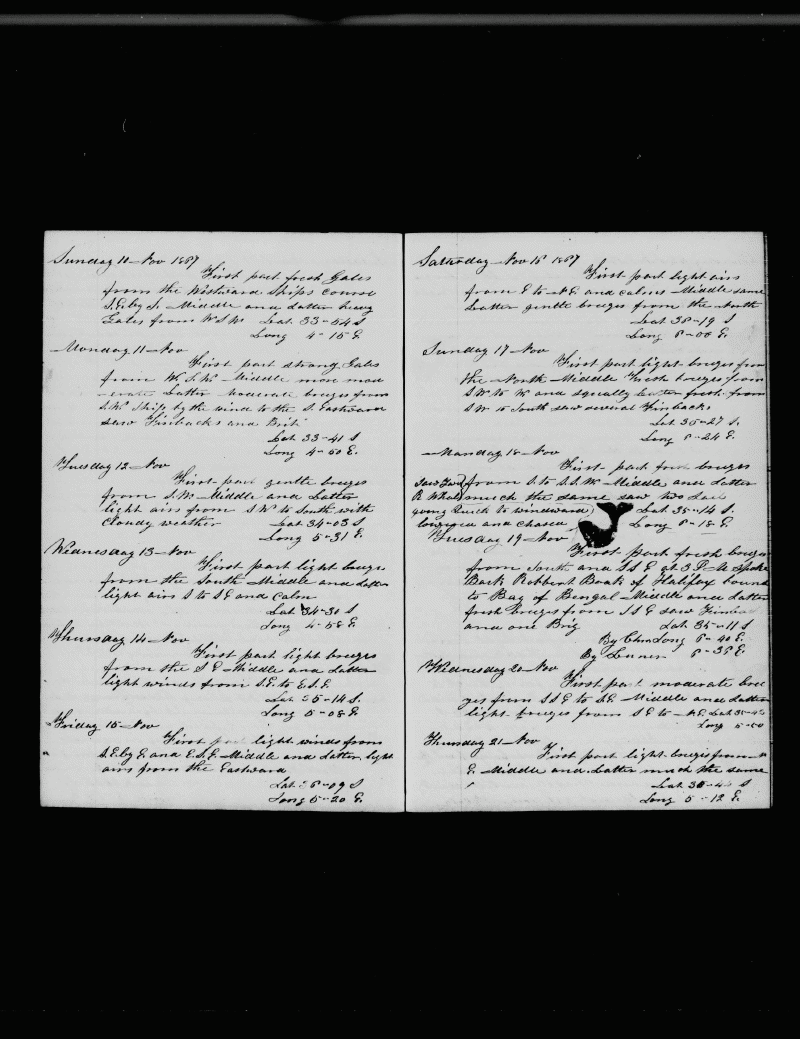 Sunday 10 Nov 1867
First part fresh Gales
from the Westward Ships course
S.E. by S. Middle and Latter heavy
Gales from W S W Lat 33-54 S
Long 4-15 E.
Monday 11 Nov
First part strong Gales
from W. S. W. Middle more mod
erate Latter Moderate breezes from
S.W. Ship by the wind to the S. Eastward
saw Finbacks and
Lat 33-41 S
Long 4-50 E.
Tuesday 12 Nov
First part gentle breezes
from S.W. Middle and Latter
light airs from S W to South with
cloudy weather Lat 34-03 S
Long 5-31 E.
Wednesday 13 Nov
First part light breezes
from the South Middle and Latter
light airs S to S E and Calm
Lat 34-30 S
Long 4-58 E.
Thursday 14 Nov
First part light breezes
from the S E Middle and Latter
light winds from S.E. to E.S.E.
Lat 35-14 S.
Long 5-08 E.
Friday 15 Nov
First part light winds from
S.E. by E. and E.S.E. Middle and Latter light
airs from the Eastward
Lat 36-09 S
Long 5-20 E.
Saturday Nov 16 1867
First part light airs
from E to N.E. and calms Middle same
Latter gentle breezes from the North
Lat 36-19 S
Long 6-08 E.
Sunday 17 Nov
First part light breezes from
the North Middle Fresh breezes from
S W to W and squally Latter fresh from
S W to South saw several Finbacks
Lat 35-27 S.
Long 6-24 E.
Monday 18 Nov
First part fresh breezes
saw two from S. to S.S.W. Middle and Latter
R Whales much the same saw two
going quick to windward Lat 35-14 S.
lowered and chased Long 6-18 E.
Tuesday 19 Nov
First part fresh breezes
from South and S S E at 3 P.M. spoke
Bark Robbert Boak of Halifax bound
to Bay of Bengal Middle and Latter
fresh breezes from S S E saw
and one Brig Lat 35-11 S
By Chro Long 6-40 E.
By Lunar 6-36 E.
Wednesday 20 Nov
First part moderate bree
zes from S S E to S.E. Middle and Latter
light breezes from S E to N.E. Lat
Long
Thursday 21 Nov
First part light breezes from N
E. Middle and Latter much the same
Lat
Long 5-12 E.